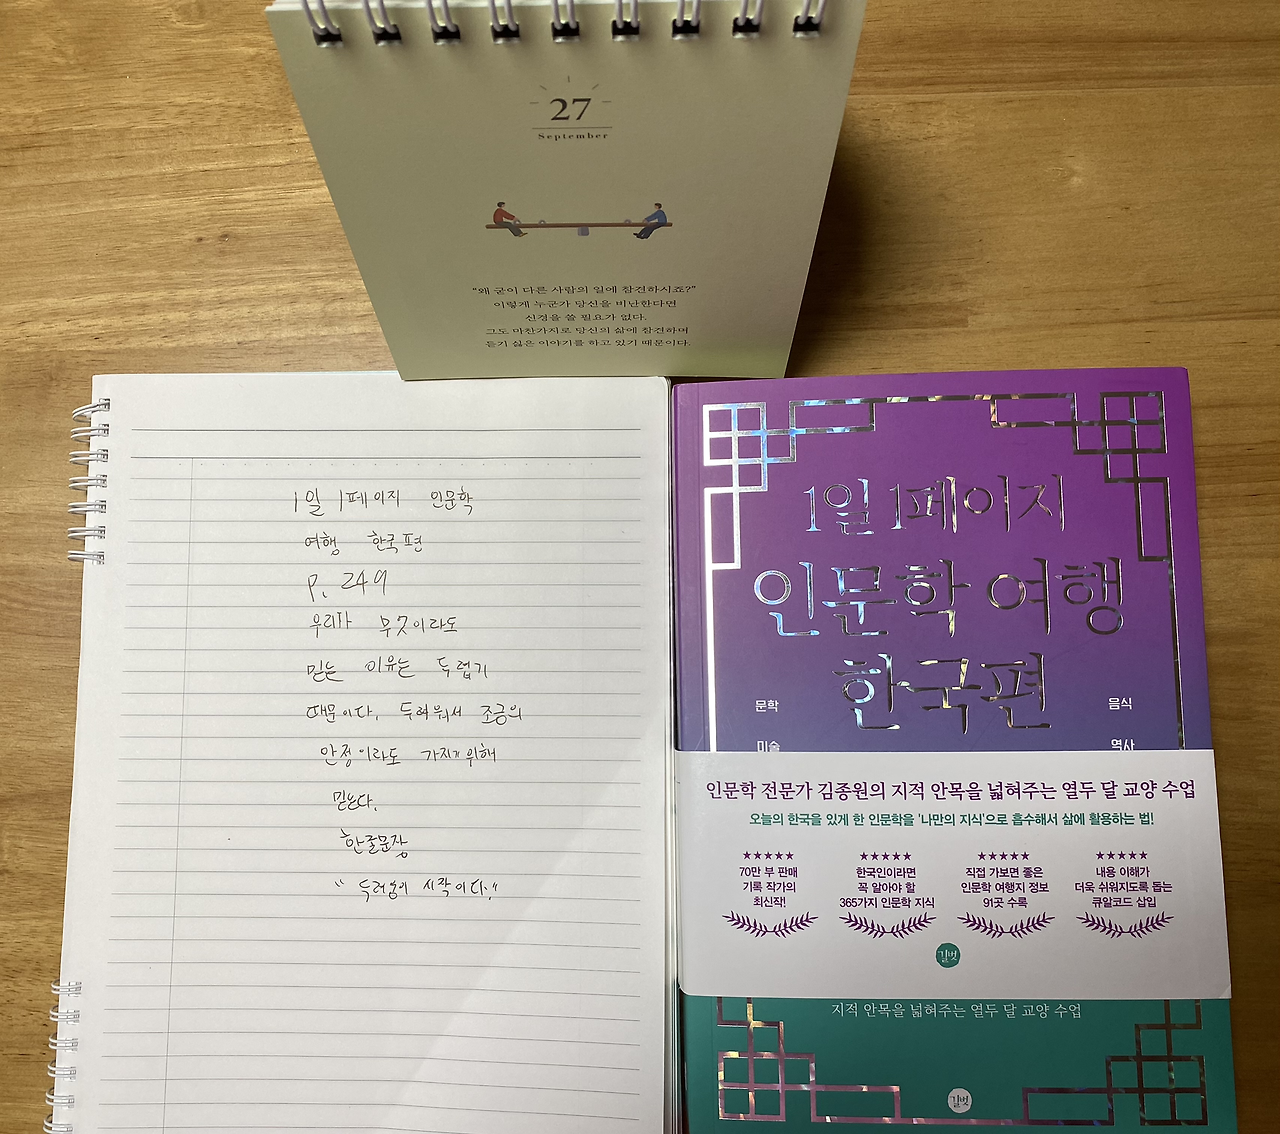 27
September
"왜 굳이 다른 사람의 일에 참견하시죠?"
이렇게 누군가 당신을 비난한다면
신경을 쓸 필요가 없다.
그도 마찬가지로 당신의 삶에 참견하며
듣기 싫은 이야기를 하고 있기 때문이다.
1일 1페이지 인문학
여행 한국편
p. 249
우리가 무엇이라도
믿는 이유는 두렵기
때문이다. 두려워서 조금의
안정이라도 가지기 위해
믿는다.
한줄문장
"두려움이 시작이다."
1일 1페이지
인문학 여행
한국편
문학
음식
미술
역사
인문학 전문가 김종원의 지적 안목을 넓혀주는 열두 달 교양 수업
오늘의 한국을 있게 한 인문학을 '나만의 지식'으로 흡수해서 삶에 활용하는 법!
★★★★★
70만 부 판매
기록 작가의
최신작!
★★★★★
한국인이라면
꼭 알아야 할
365가지 인문학 지식
★★★★★
직접 가보면 좋은
인문학 여행지 정보
91곳 수록
★★★★★
내용 이해가
더욱 쉬워지도록 돕는
큐알코드 삽입
길벗
지적 안목을 넓혀주는 열두 달 교양 수업
길벗